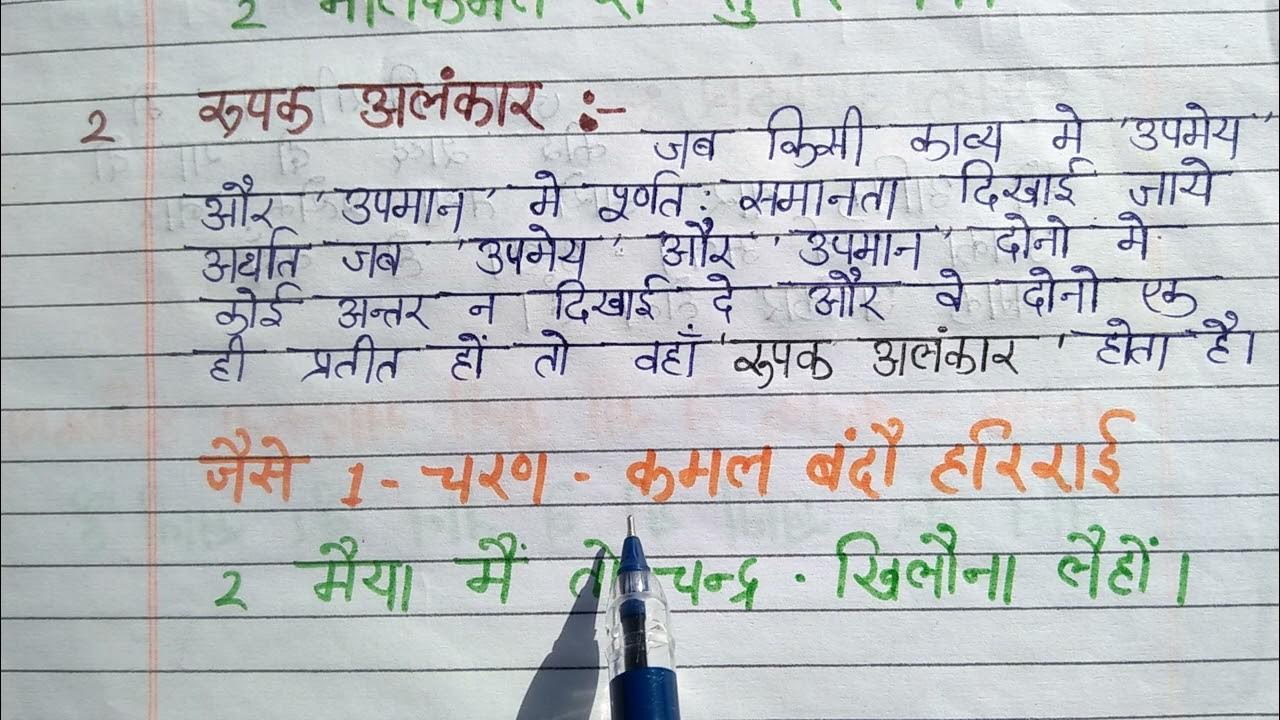 2
2 रूपक अलंकार :-
जब किसी काव्य मे 'उपमेय'
और 'उपमान' मे पूर्णत: समानता दिखाई जाये
अर्थात जब 'उपमेय' और 'उपमान' दोनो मे
कोई अन्तर न दिखाई दे और वे दोनो एक
ही प्रतीत हों तो वहाँ 'रूपक अलंकार' होता है।
जैसे 1- चरण - कमल बंदौ हरिराई
2 मैया मैं तो चन्द्र - खिलौना लैहों।